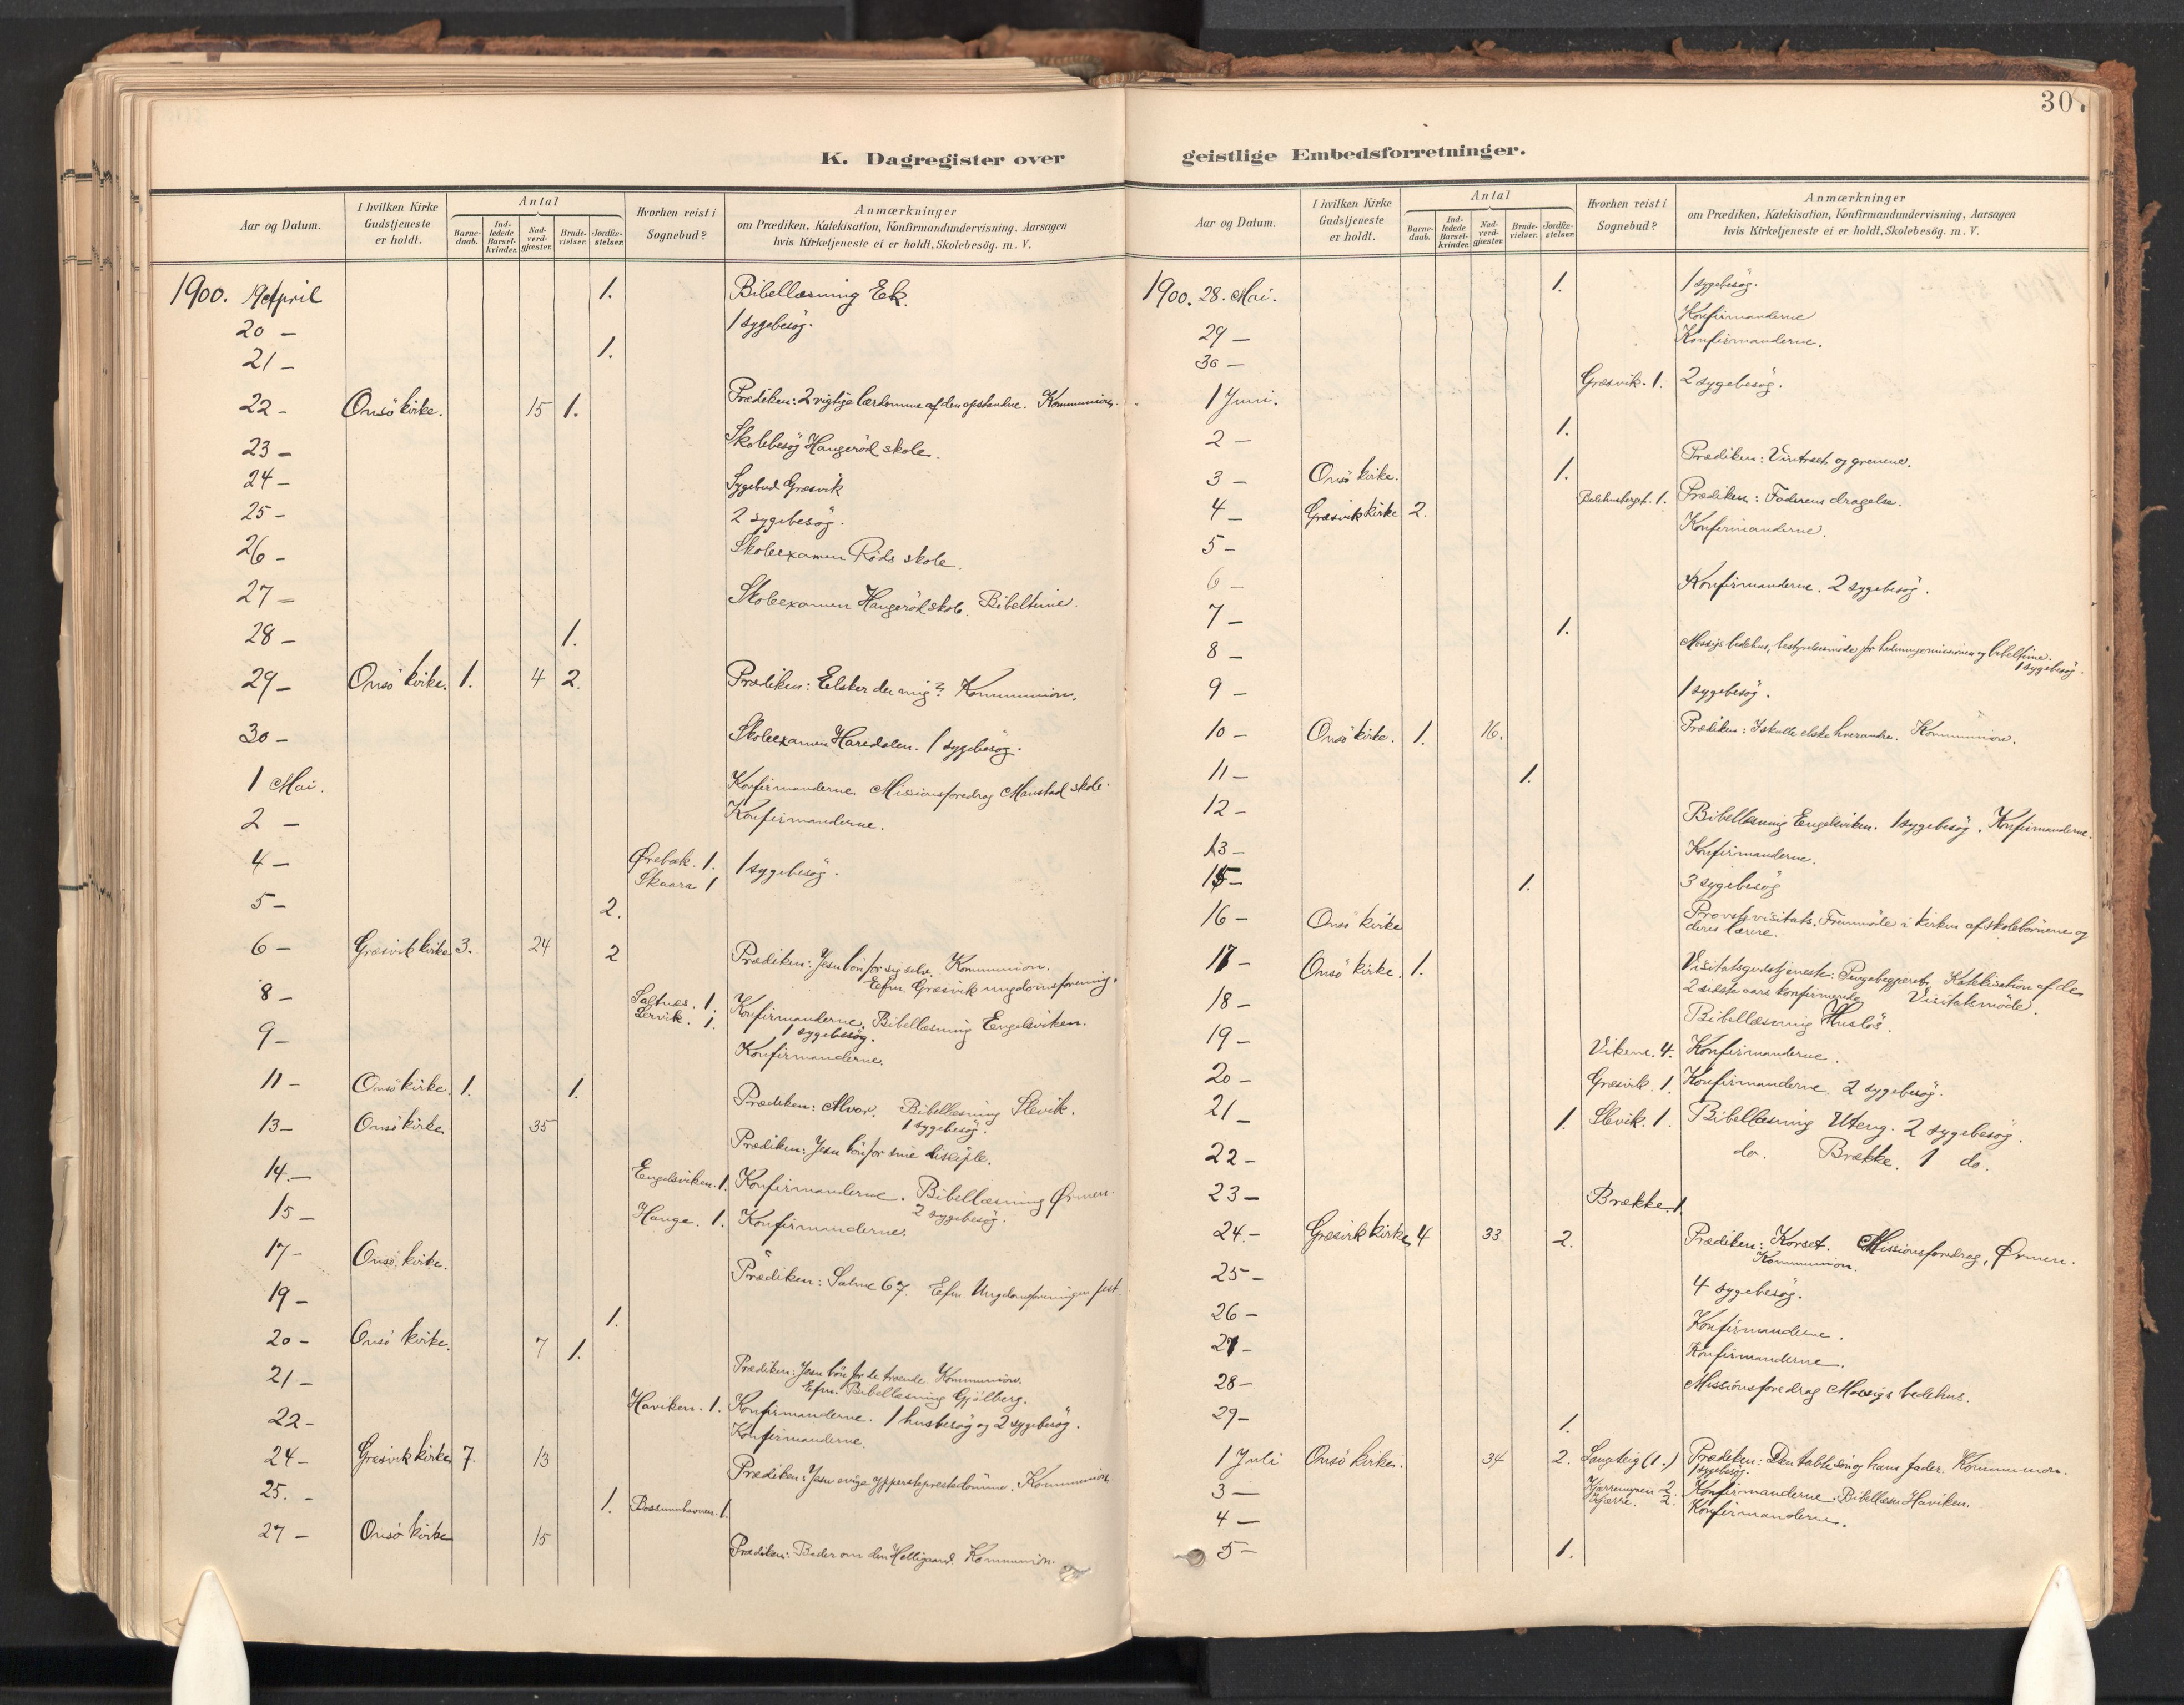 K. Dagregister over
Aar og Datum. I hvilken Kirke Gudstjeneste er holdt. Antal Barnedaab. Indledede Barselkvinder. Nadverdgjæster. Brudevielser. Jordfæstelser. Hvorhen reist i Sognebud? Anmærkninger om Prædiken, Katekisation, Konfirmandundervisning, Aarsagen hvis Kirketjeneste ei er holdt, Skolebesög. m. V.
1900. 19 April 1. Bibellæsning Ek.
20 – 1 sygebesøg.
21 – 1.
22 – Onsö kirke. 15 1. Prædiken: 2 vigtige lærdomme af den opstandne. Kommunion.
23 – Skolebesøg Haugerød skole.
24 – Sygebud Græsvik
25 – 2 sygebesøg.
26 – Skoleexamen Røds skole.
27 – Skoleexamen Haugerød skole. Bibeltime.
28 – 1.
29 – Onsö kirke. 1. 4 2. Prædiken: Elsker du mig? Kommunion.
30 – Skoleexamen Haredalen. 1 sygebesøg.
1 Mai. Konfirmanderne. Missionsforedrag Manstad skole.
2 – Konfirmanderne.
4 – Ørebæk. 1. 1 sygebesøg.
Skaara 1
5 – 2.
6 – Græsvik kirke 3. 24 2 Prædiken: Jesu bön for sig selv. Kommunion.
Efm. Græsvik ungdomsforening.
8 – Saltnæs. 1. Konfirmanderne. Bibellæsning Engelsviken.
Lervik. 1. 1 sygebesøg.
9 – Konfirmanderne.
11 – Onsö kirke. 1. 1. Prædiken: Alvor. Bibellæsning Slevik.
1 sygebesøg.
13 – Onsö kirke 35 Prædiken: Jesu bön for sine disciple.
14. – Engelsviken. 1. Konfirmanderne. Bibellæsning Ørmen.
2 sygebesøg.
15 – Hauge. 1. Konfirmanderne.
17 – Onsö kirke. Prædiken: Salme 67. Efm. Ungdomsforeningen fest.
19 – 1.
20 – Onsö kirke. 7 1. Prædiken: Jesu bön for de troende. Kommunion.
Efm. Bibellæsning Gjølberg.
21 – Haviken. 1. Konfirmanderne. 1 husbesøg og 2 sygebesøg.
22 – Konfirmanderne.
24 – Græsvik kirke 7. 13 Prædiken: Jesu evige ypperstepræstedömme. Kommunion
25. – 1. 1.
27 – Onsö kirke 15 Prædiken: Beder om den Helligaand. Kommunion.
geistlige Embedsforretninger.
30
Aar og Datum. I hvilken Kirke Gudstjeneste er holdt. Antal Barnedaab. Indledede Barselkvinder. Nadverdgjæster. Brudevielser. Jordfæstelser. Hvorhen reist i Sognebud? Anmærkninger om Prædiken, Katekisation, Konfirmandundervisning, Aarsagen hvis Kirketjeneste ei er holdt, Skolebesög. m. V.
1900. 28. Mai. 1. 1 sygebesøg.
29 – Konfirmanderne
30 – Konfirmanderne.
1 Juni. Græsvik. 1. 2 sygebesøg.
2 – 1.
3 – Onsö kirke. 1. Prædiken: Vintræet og grenene.
4 – Græsvik kirke 2. 1. Prædiken: Faderens dragelse.
5 – Konfirmanderne.
6 – Konfirmanderne. 2 sygebesøg.
7 – 1.
8 – bedehus, bestyrelsesmöde for hedningemissionen og bibeltime.
1 sygebesøg.
9 – 1 sygebesøg.
10 – Onsö kirke. 1. 16. Prædiken: I skulle elske hverandre. Kommunion.
11 – 1.
12 – Bibellæsning Engelsviken. 1 sygebesøg. Konfirmanderne.
13 – Konfirmanderne.
15 – 1. 3 sygebesøg
16 – Onsö kirke Provstevisitats. Fremmöde i kirken af skolebörnene og
deres lærere.
17 – Onsö kirke. 1. Visitatsgudstjeneste: Pengebegjæret. Katekisation af de
2 sidste aars konfirmerede. Visitatsmöde.
18 – Bibellæsning Huslös.
19 – Vikene. 4. Konfirmanderne.
20 – Græsvik. 1. Konfirmanderne. 2 sygebesøg.
21 – 1. Slevik. 1. Bibellæsning Uteng. 2 sygebesøg.
22 – do. Brække. 1 do.
23 – Brække. 1.
24. – Græsvik kirke 4 33 2. Prædiken: Korset. Missionsforedrag, Ørmen.
Kommunion.
25 – 4 sygebesøg.
26 – Konfirmanderne.
27 – Konfirmanderne.
28 – Missionsforedrag bedehus.
29 – 1.
1 Juli Onsö kirke. 34 2. Langteig (1.) Prædiken: Den tabte sön og hans fader. Kommunion.
1 sygebesøg.
3 – 2. Konfirmanderne. Bibellæsn Haviken.
4 – Kjærre. 2. Konfirmanderne.
5 – 1.